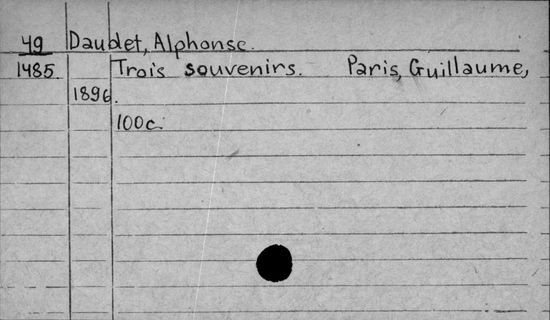 49 Daudet, Alphonse.
1485. Trois souvenirs. Paris, Guillaume,
1896.
100c.